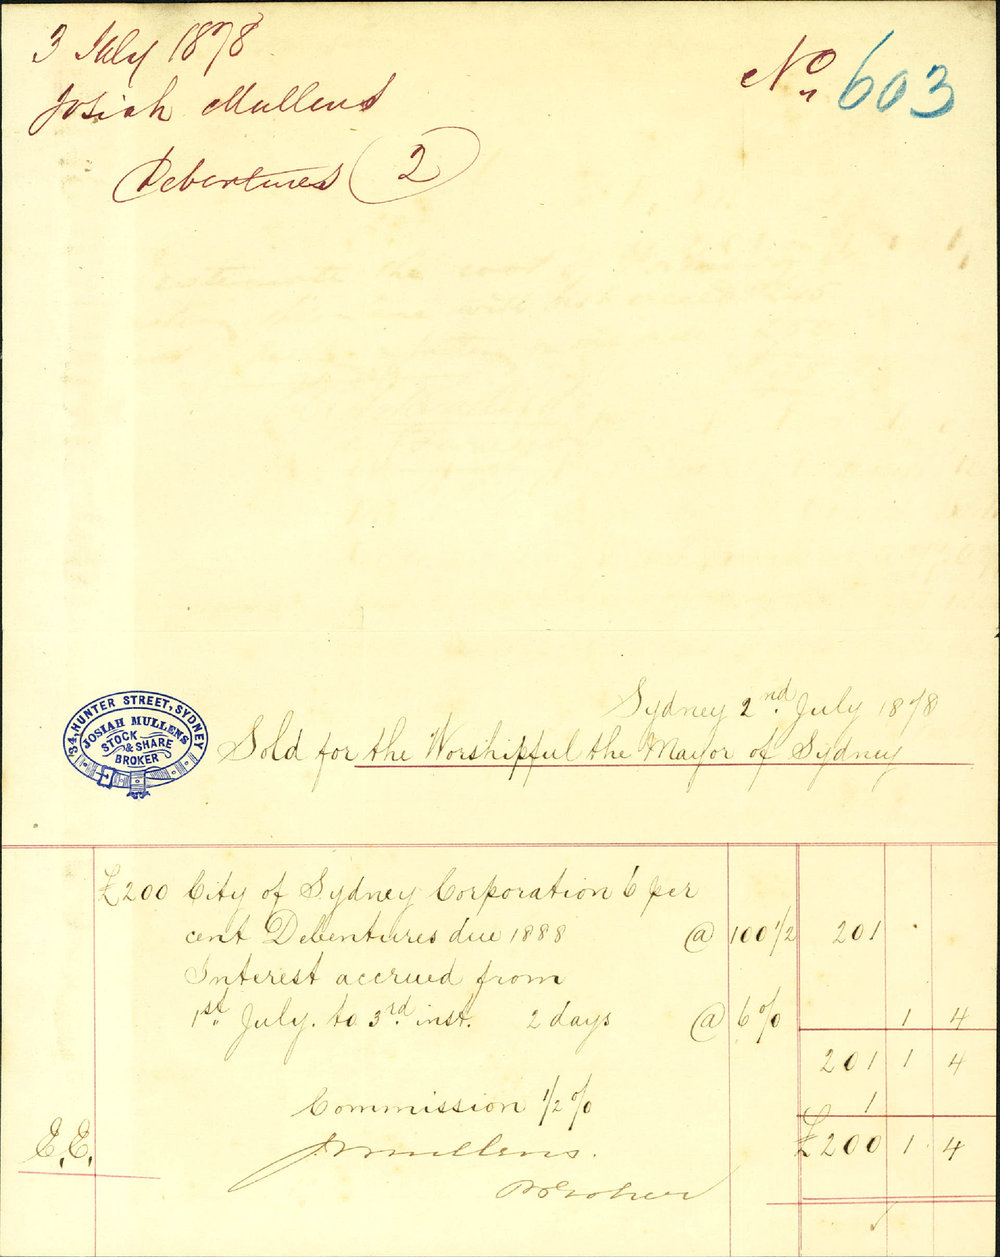 3 July 1878
No. 603
Josiah Mullens
Debentures 2
Sydney 2nd. July 1878
34, HUNTER STREET, SYDNEY
JOSIAH MULLENS
STOCK
& SHARE
BROKER
Sold for the Worshipful the Mayor of Sydney
£200 City of Sydney Corporation 6 per
cent Debentures due 1888 @ 100 1/2 201 . 
Interest accrued from
1st. July. to 3rd. inst. 2 days @ 6% 1 4
201 1 4
Commission 1/2 % 1
E.E. £200 1 4
J Mullens.
Broker